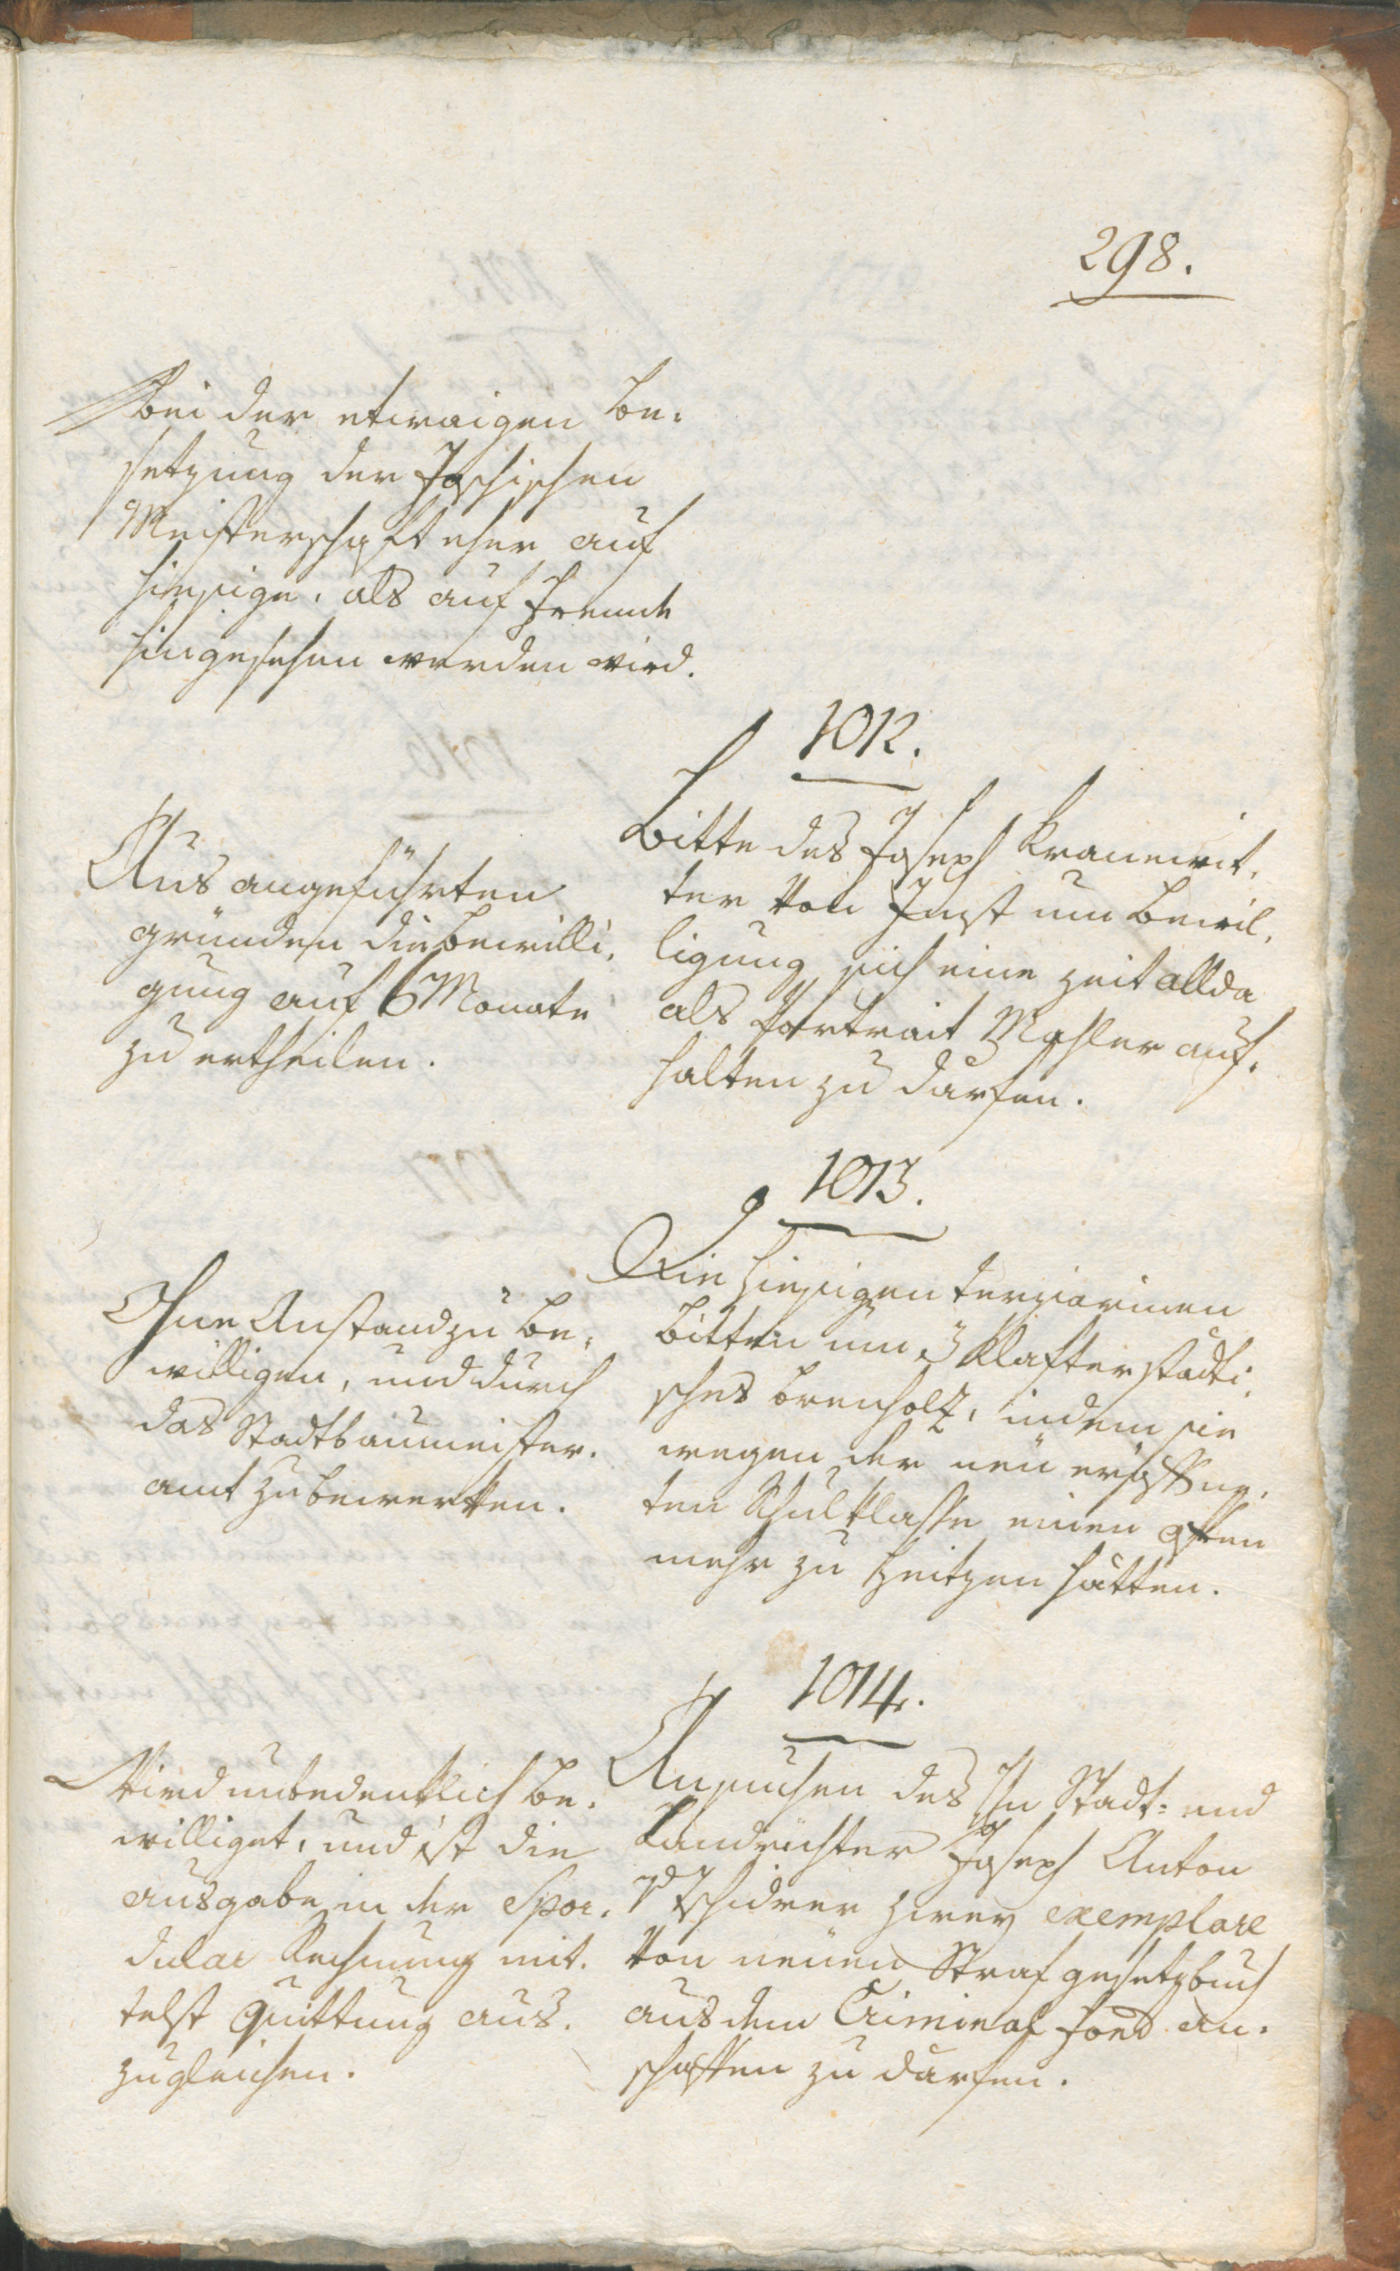 298.
bei der etwaigen be-
setzung der Joschischen
Meisterschaft eher auf
hiesige, als auf Fremde
hingesehen werden wird.
1012.
Bitte des Joseph Kranewit-
ter von Imst um Bewil-
ligung sich eine Zeit allda
als Portrait Mahler auf-
halten zu därfen.
Aus angeführten
gründen die bewilli-
gung auf 6 Monate
zu ertheilen.
1013.
Die hiesigen terziarinen
bitten um 3 Klafter städti-
sches brenholz, indem sie
wegen der neü eröffne-
ten Schulklasse einen offen
mehr zu heitzen hätten.
Ohne Anstand zu be-
willigen, und durch
das Stadtbaumeister-
amt zu bewerken.
1014.
Ansuchen des Hn Stadt- und
Landrichter Joseph Anton
v Tschidrer zwey exemplare
von neuen Straf gesetzbuch
aus dem Criminal fond an-
schaffen zu därfen.
Wird unbedenklich be-
williget, und ist die
ausgabe in der Spor-
dular Rechnung mit-
telst Quittung aus-
zugleichen.